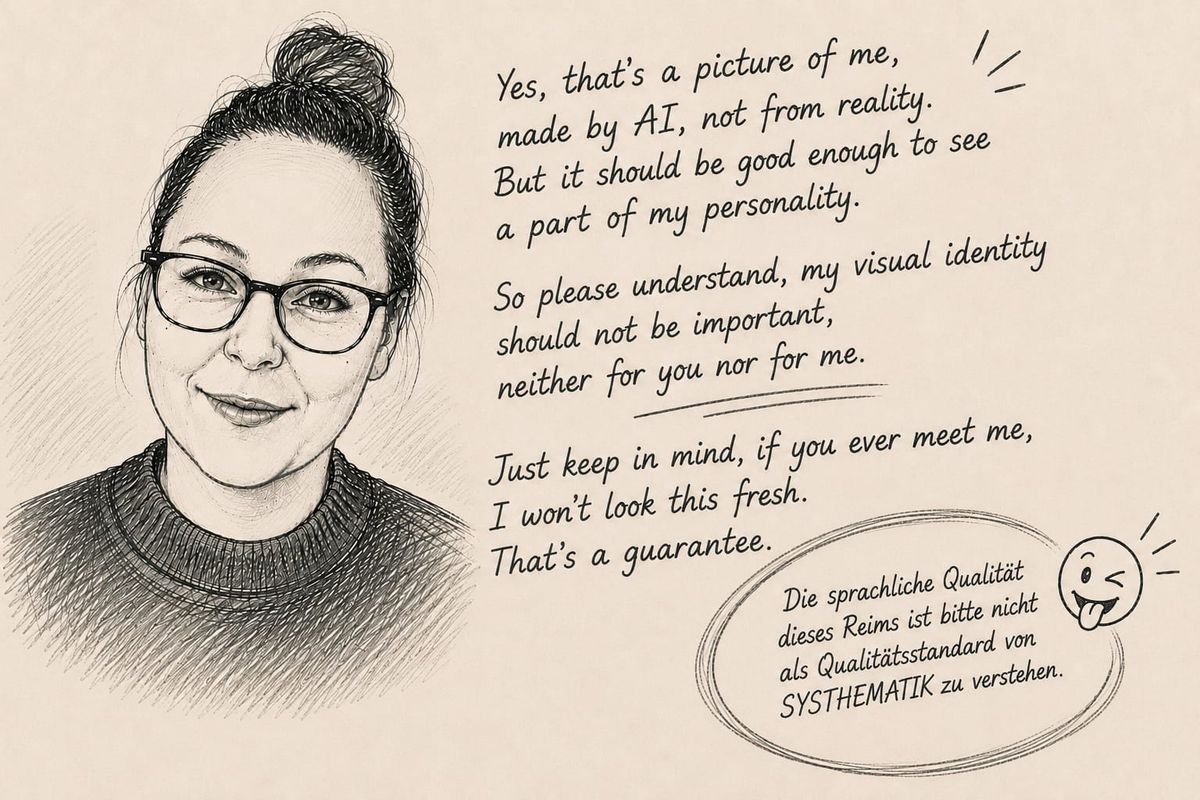 Yes, that's a picture of me,
made by AI, not from reality.
But it should be good enough to see
a part of my personality.
So please understand, my visual identity
should not be important,
neither for you nor for me.
Just keep in mind, if you ever meet me,
I won't look this fresh.
That's a guarantee.
Die sprachliche Qualität
dieses Reims ist bitte nicht
als Qualitätsstandard von
SYSTHEMATIK zu verstehen.